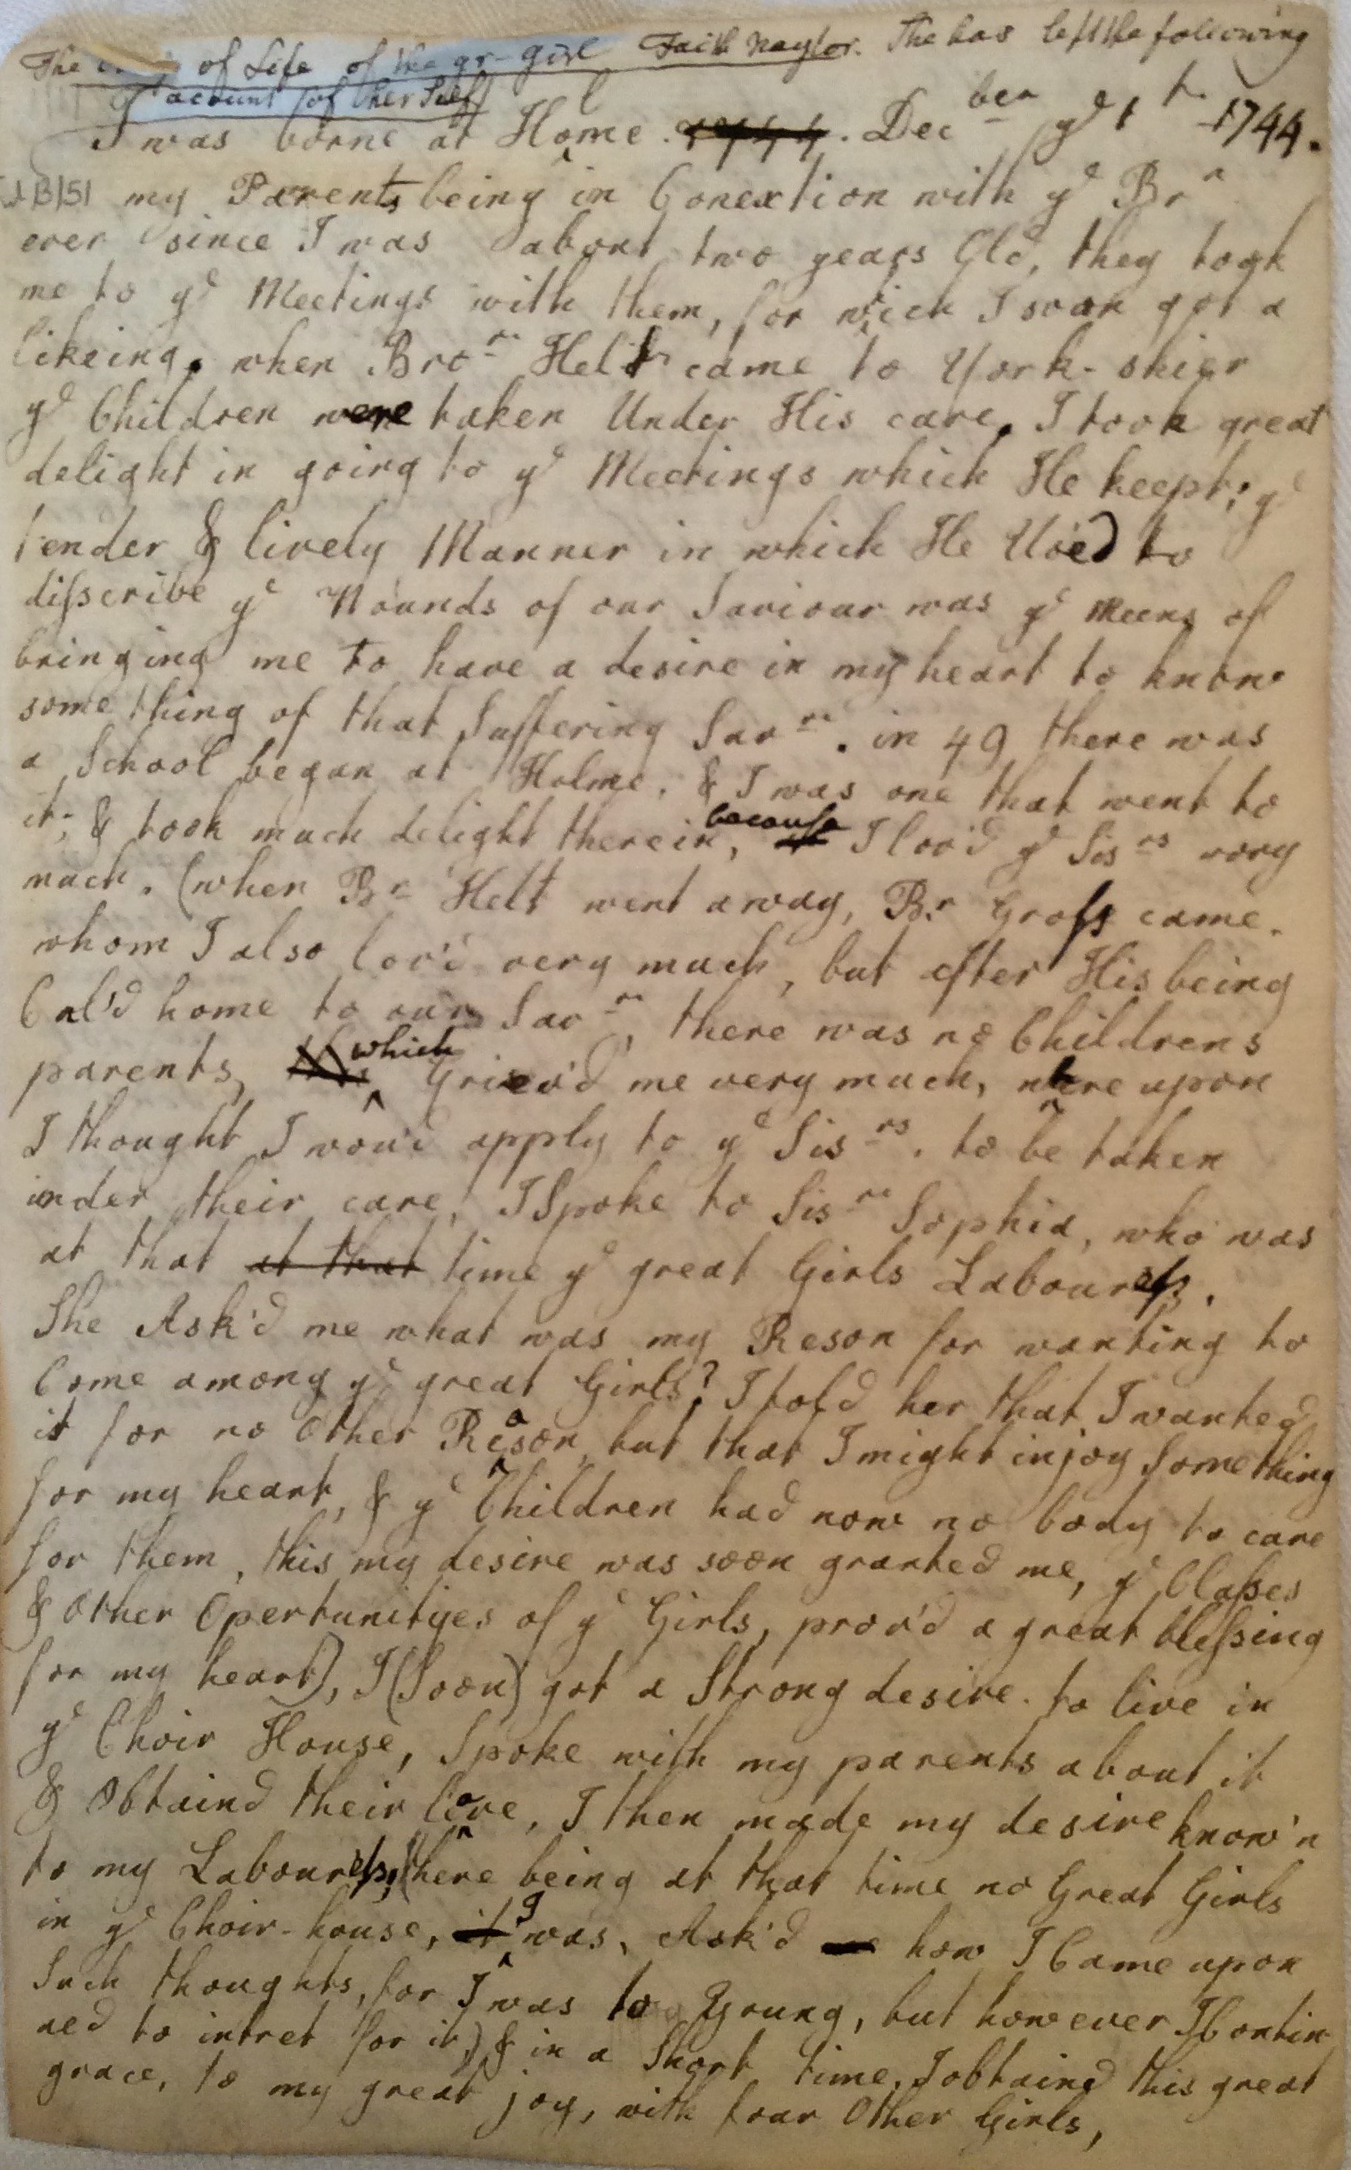 The of Life of the gr- girl Faith Naylor. She has left the following
account (of her Self)
I was borne at Holme. 1744. Decber ye 1t 1744.
JB/51 my Parents being in Conextion with ye Brn
ever since I was about two years Old, they took
me to ye Meetings with them, for wich I soon got a
likeing. when Bror Helt came to York-shier
ye Children were taken Under His care. I took great
delight in going to ye Meetings which He keept; ye
tender & lively Manner in which He Used to
disscribe ye Wounds of our Saviour was ye Meens of
bringing me to have a desire in my heart to know
some thing of that Suffering Savr. in 49 there was
a School began at Holme, & I was one that went to
it; & took much delight therein, because I lov'd ye Sisrs very
much. (when Br Helt went away, Br Gross came.
whom I also lov'd very much, but after His being
Cal'd home to our Savr, there was no Childrens
parents, which Griev'd me very much, where upon
I thought I wou'd apply to ye Sisrs. to be taken
under their care, I Spoke to Sisr Sophia, who was
at that at that time ye great Girls Labouress.
She Ask'd me what was my Reson for wanting to
Come among ye great Girls? I told her that I wanted
it for no Other Reason, but that I might injoy Some thing
for my heart, & ye Children had now no body to care
for them, this my desire was soon granted me, ye Classes
& Other Opertunityes of ye Girls, prov'd a great blessing
for my heart), I (Soon) got a Strong desire. to live in
ye Choir House, Spoke with my parents about it
& Obtaind their love, I then made my desire know'n
to my Labouress, (there being at that time no Great Girls
in ye Choir-house, it I was, Ask'd how I Came upon
Such thoughts, for I was to Young, but however I Contin-
ued to intret for it) & in a Short time, I obtained this great
grace, to my great joy, with four Other Girls,